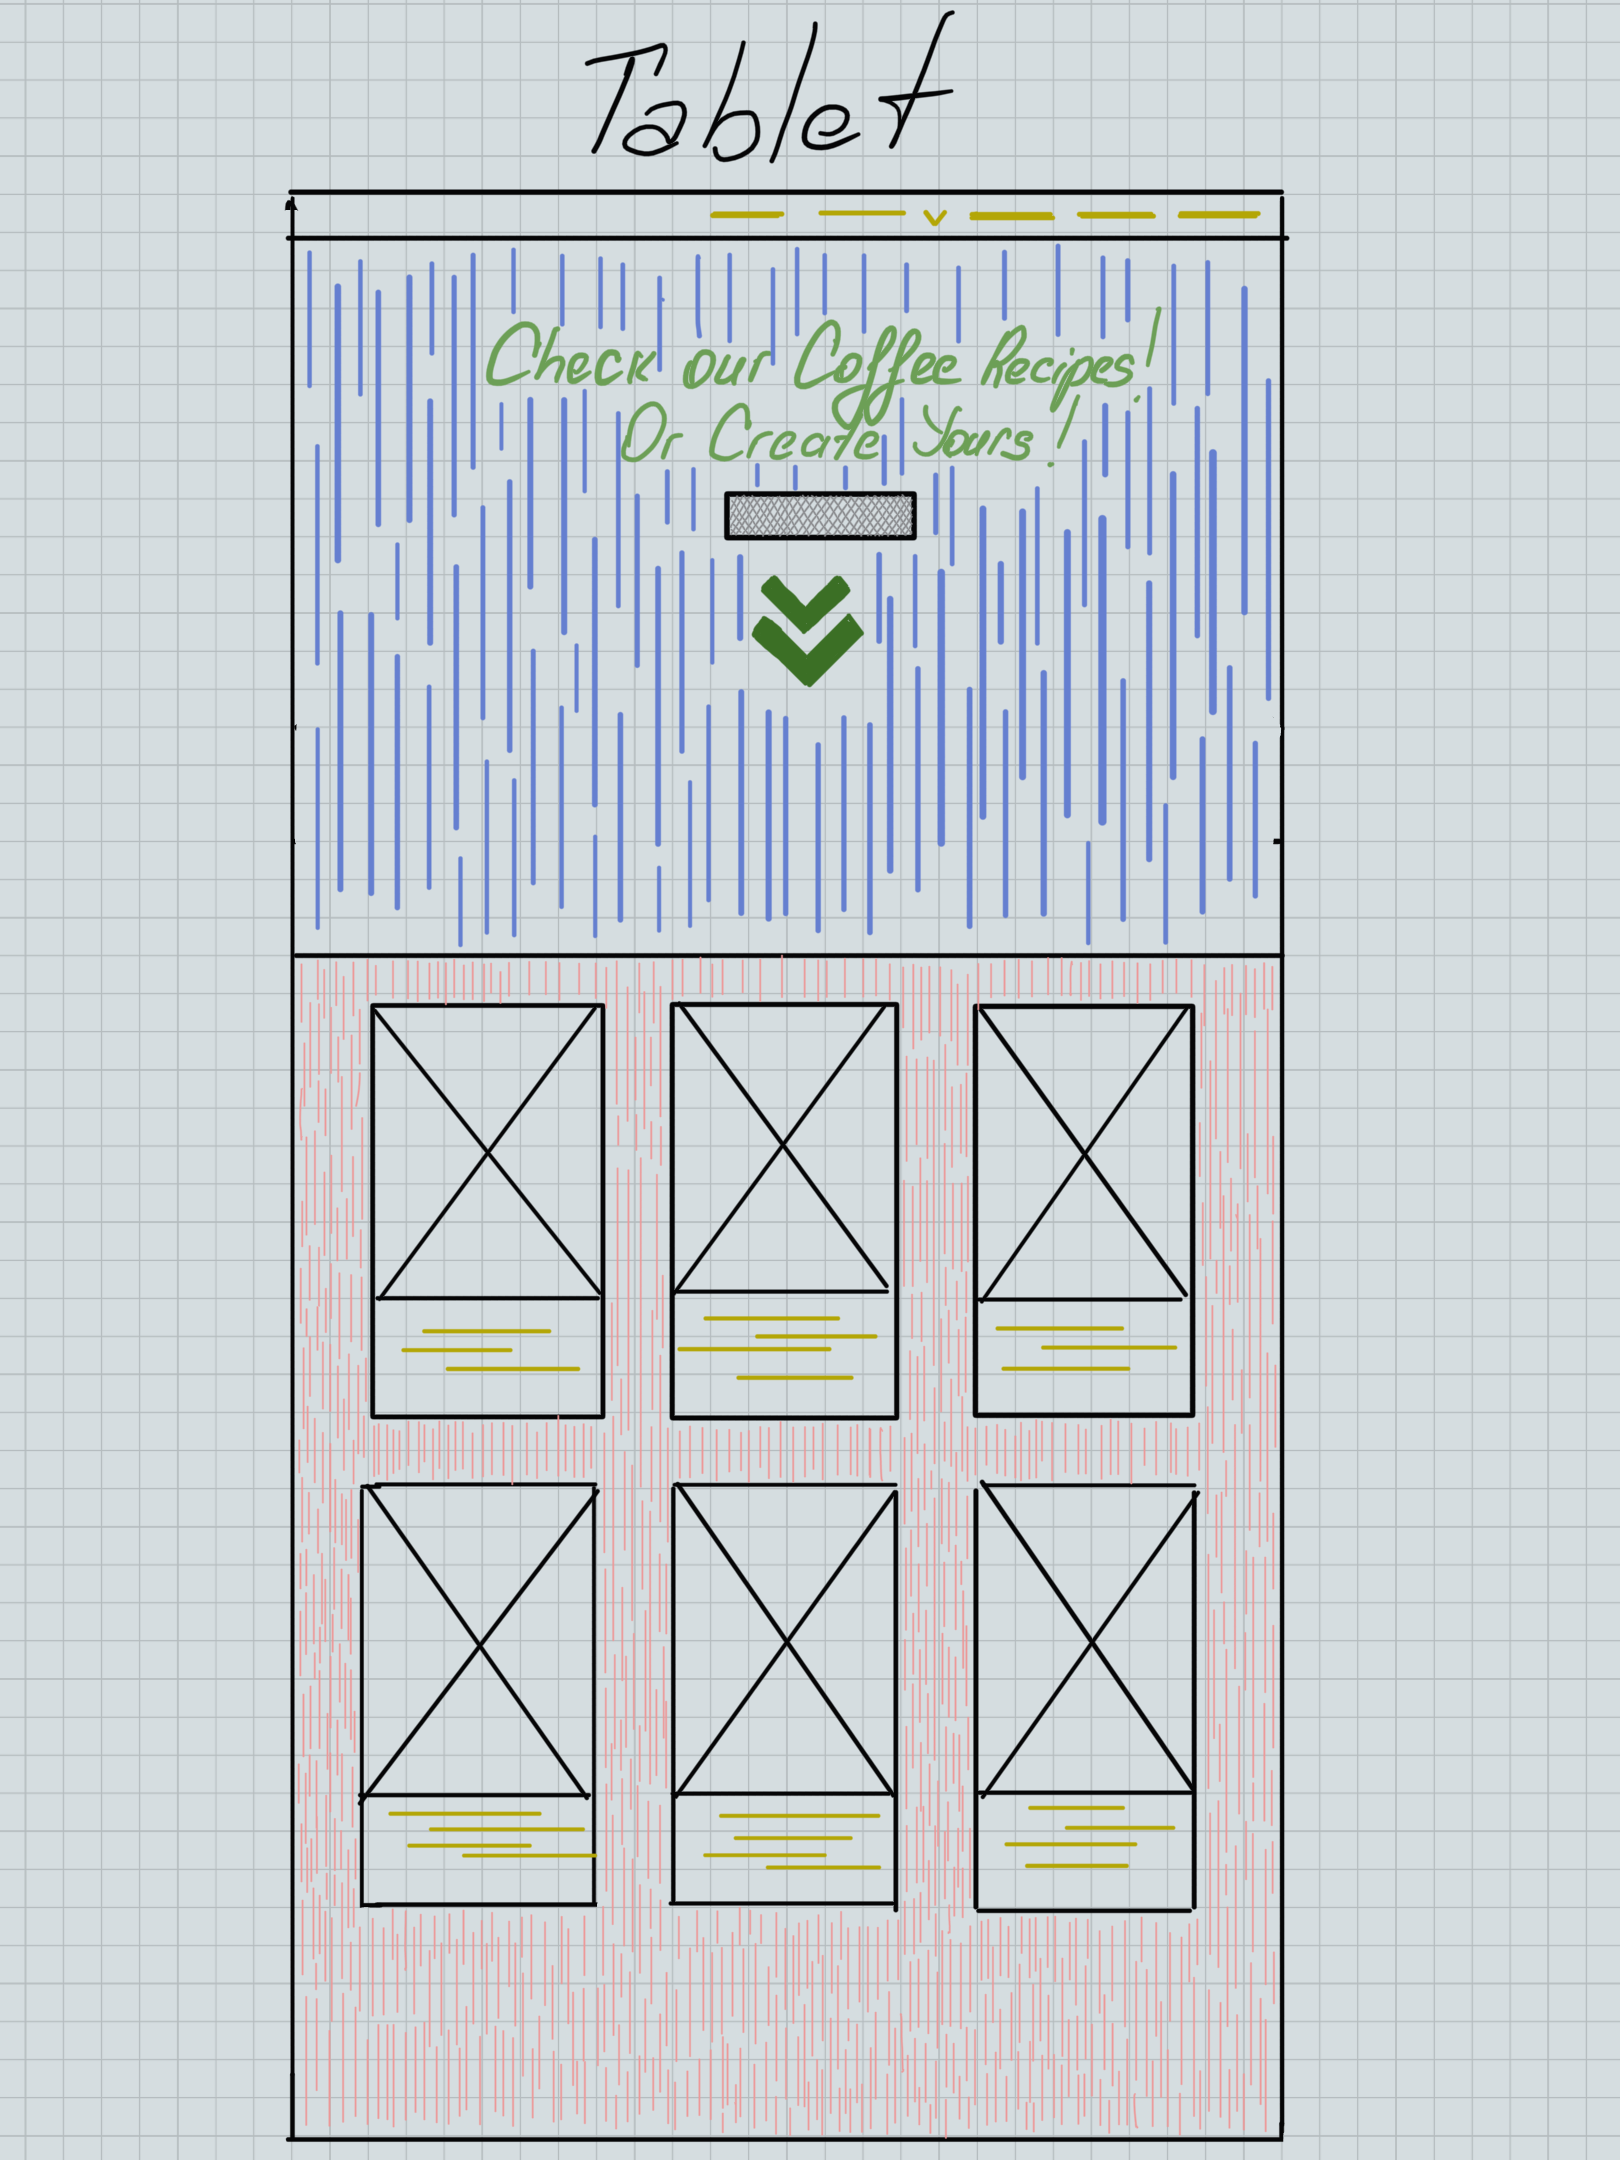 Tablet
Check our Coffee Recipes!
Or Create Yours!